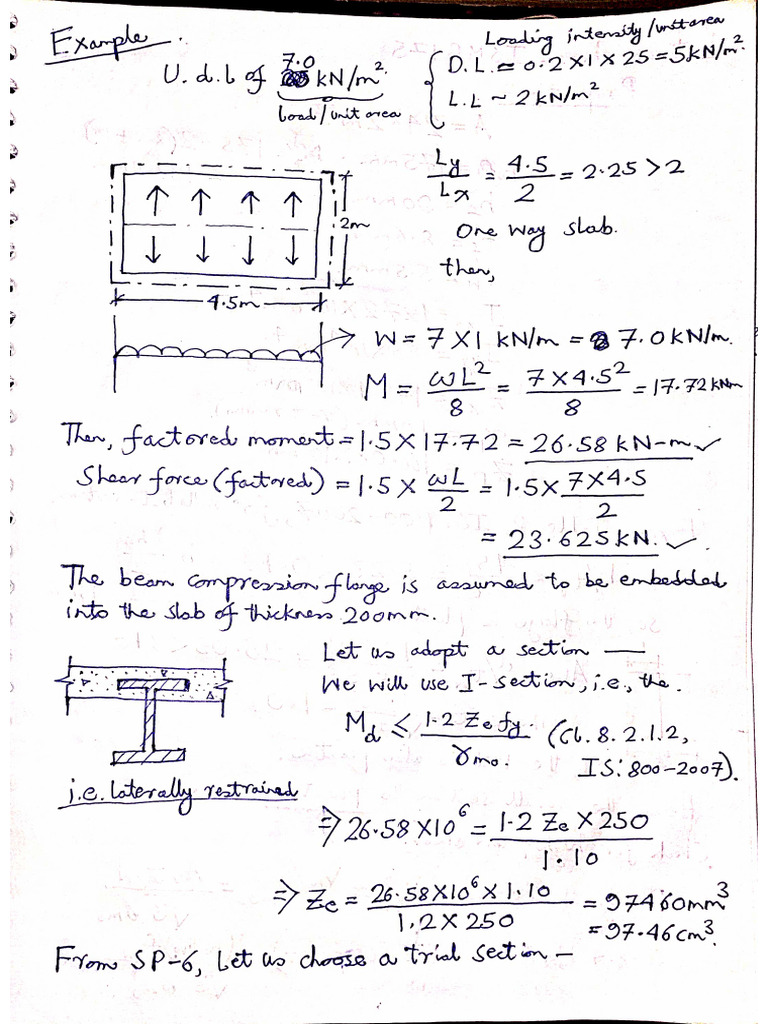 Example.
Loading intensity/unit area
U.d.l of 7.0 kN/m²
D.L. ≃ 0.2 X 1 X 25 = 5 kN/m²
load/unit area
L.L ~ 2 kN/m²
Ly/Lx = 4.5/2 = 2.25 > 2
2m
One way slab.
then,
4.5m
W = 7 X 1 kN/m = 7.0 kN/m.
M = ωL²/8 = 7 X 4.5²/8 = 17.72 kNm
Then, factored moment = 1.5 X 17.72 = 26.58 kN-m ✓
Shear force (factored) = 1.5 X ωL/2 = 1.5 X 7X4.5/2
= 23.625 kN. ✓
The beam compression flange is assumed to be embedded
into the slab of thickness 200mm.
Let us adopt a section —
We will use I-section, i.e., the.
Md ≤ 1.2 Ze fy/γmo. (Cl. 8.2.1.2,
IS: 800-2007).
i.e. laterally restrained
⇒ 26.58 X10⁶ = 1.2 Ze X 250/1.10
⇒ Ze = 26.58X10⁶ X 1.10/1.2 X 250 = 97460mm³
= 97.46 cm³.
From SP-6, Let us choose a trial section —